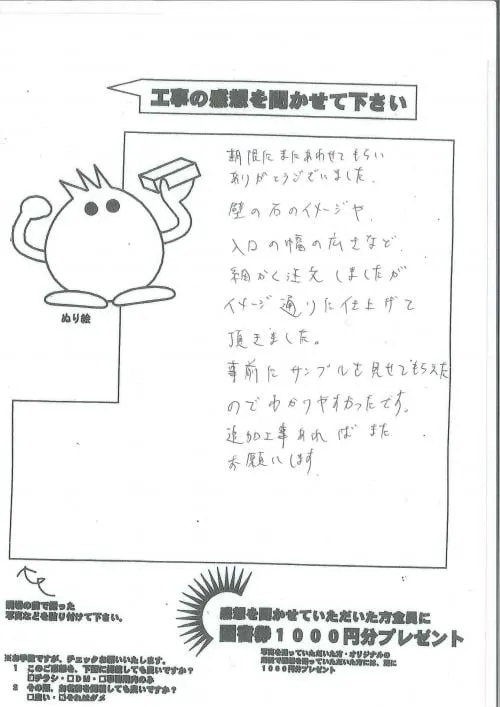 工事の感想を聞かせて下さい
期限にまにあわせてもらい
ありがとうございました。
壁の石のイメージや、
入口の幅の広さなど、
細かく注文しましたが
イメージ通りに仕上げて
頂きました。
事前にサンプルを見せてもらえた
のでわかりやすかったです。
追加工事あれば また
お願いします
ぬり絵
現場の前で撮った
写真などを貼り付けて下さい。
感想を聞かせていただいた方全員に
図書券1000円分プレゼント
写真を撮っていただいた方・オリジナルの
用紙で感想を送っていただいた方には、更に
1000円分プレゼント
※お手数ですが、チェックお願いいたします。
1 このご感想を、下記に掲載しても良いですか?
□チラシ・□DM・□事務所内のみ
2 その際、お名前を掲載しても良いですか?
□良い・□それはダメ